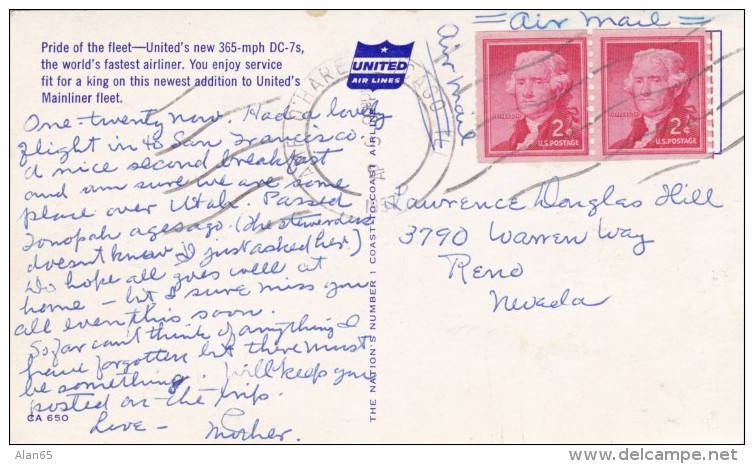 Pride of the fleet—United's new 365-mph DC-7s,
the world's fastest airliner. You enjoy service
fit for a king on this newest addition to United's
Mainliner fleet.
UNITED
AIR LINES
= Air Mail =
Air Mail
2¢
U.S. POSTAGE
2¢
U.S. POSTAGE
One-twenty now. Had a lovely
flight in to San Francisco.
a nice second breakfast
and am sure we are some
place over Utah. Passed
Tonopah ages ago (the stewardess
doesn't know I just asked her.)
Do hope all goes well at
home - but I sure miss you
all even this soon.
So far can't think of anything I
have forgotten but there must
be something. I'll keep you
posted on the trip.
Love -
Mother.
CA 650
THE NATION'S NUMBER 1 COAST-TO-COAST AIRLINE
Lawrence Douglas Hill
3790 Warren Way
Reno
Nevada
© Alan65
delcampe.net